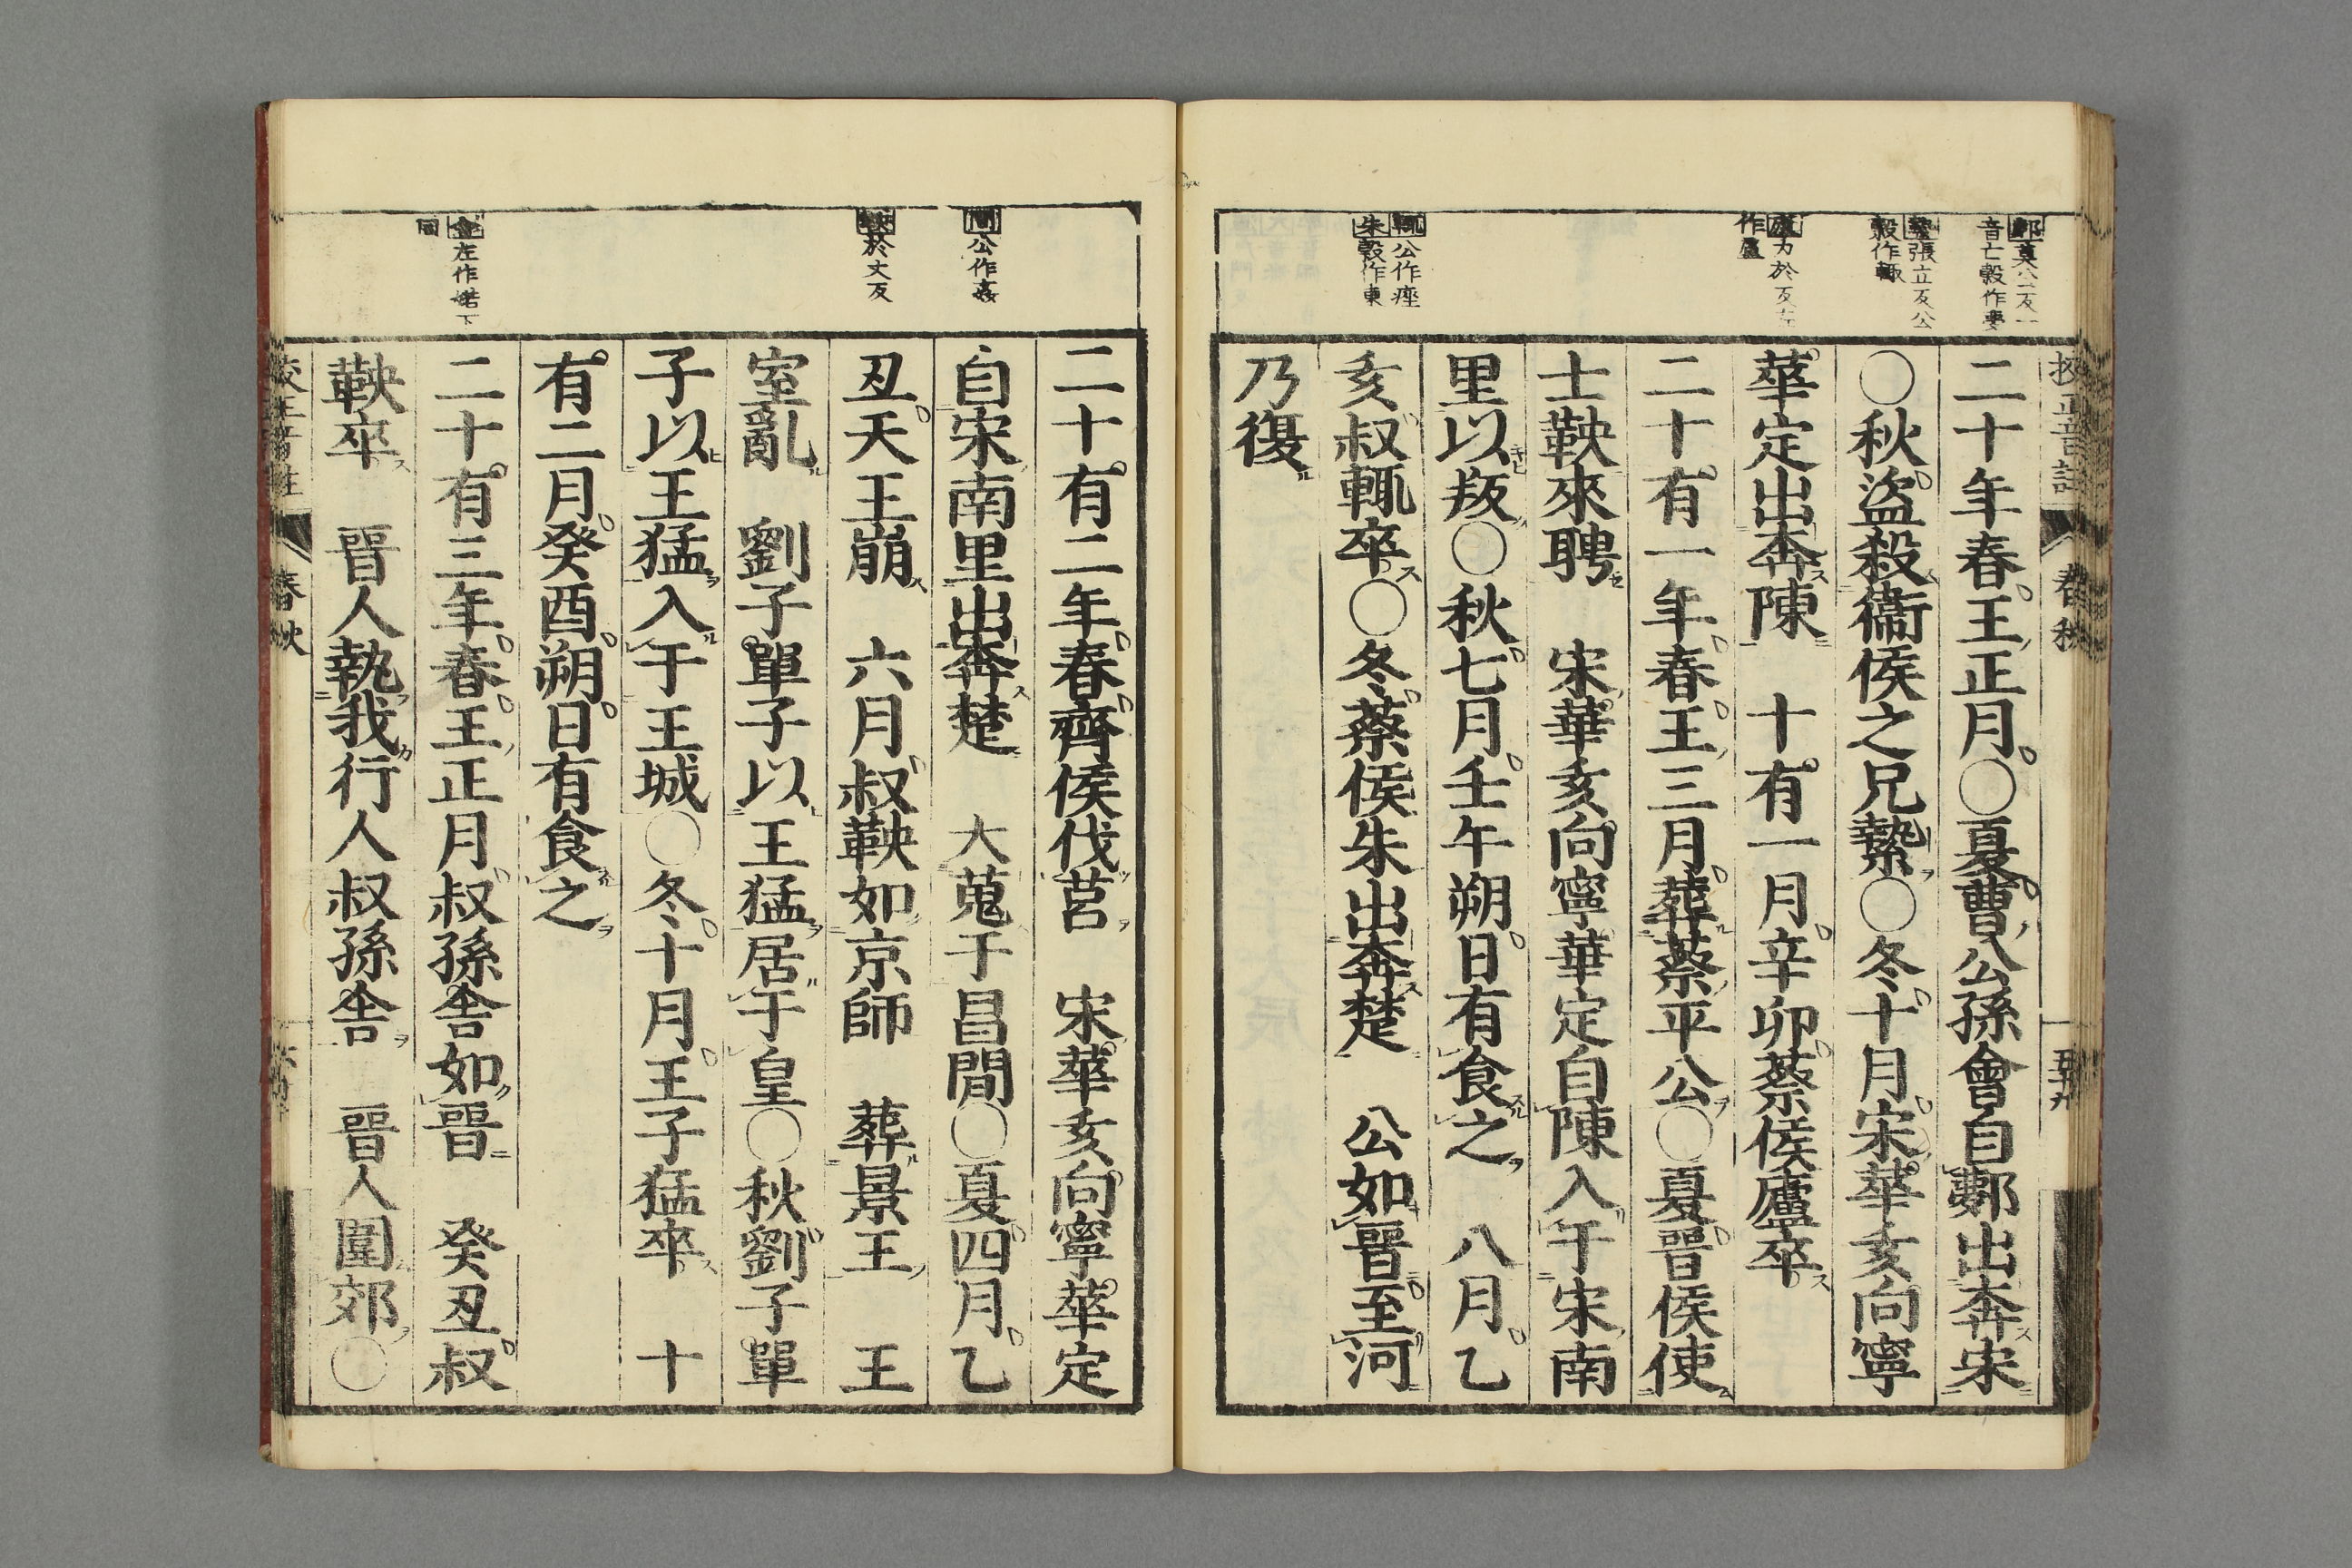 校正音註 春秋 五十九
鄸莫公反一
音亡穀作夢
縶張立反公
穀作輒
廬力於反左
作盧
輒公作痤
朱穀作東
二十年春王正月○夏曹公孫會自鄸出奔宋
○秋盜殺衞侯之兄縶○冬十月宋華亥向寧
華定出奔陳 十有一月辛卯蔡侯廬卒
二十有一年春王三月葬蔡平公○夏晉侯使
士鞅來聘 宋華亥向寧華定自陳入于宋南
里以叛○秋七月壬午朔日有食之 八月乙
亥叔輒卒○冬蔡侯朱出奔楚 公如晉至河
乃復
間公作姦
鞅於丈反
舍左作婼下
同
二十有二年春齊侯伐莒 宋華亥向寧華定
自宋南里出奔楚 大蒐于昌間○夏四月乙
丑天王崩 六月叔鞅如京師 葬景王 王
室亂 劉子單子以王猛居于皇○秋劉子單
子以王猛入于王城○冬十月王子猛卒 十
有二月癸酉朔日有食之
二十有三年春王正月叔孫舍如晉 癸丑叔
鞅卒 晉人執我行人叔孫舍 晉人圍郊○
校正音註 春秋